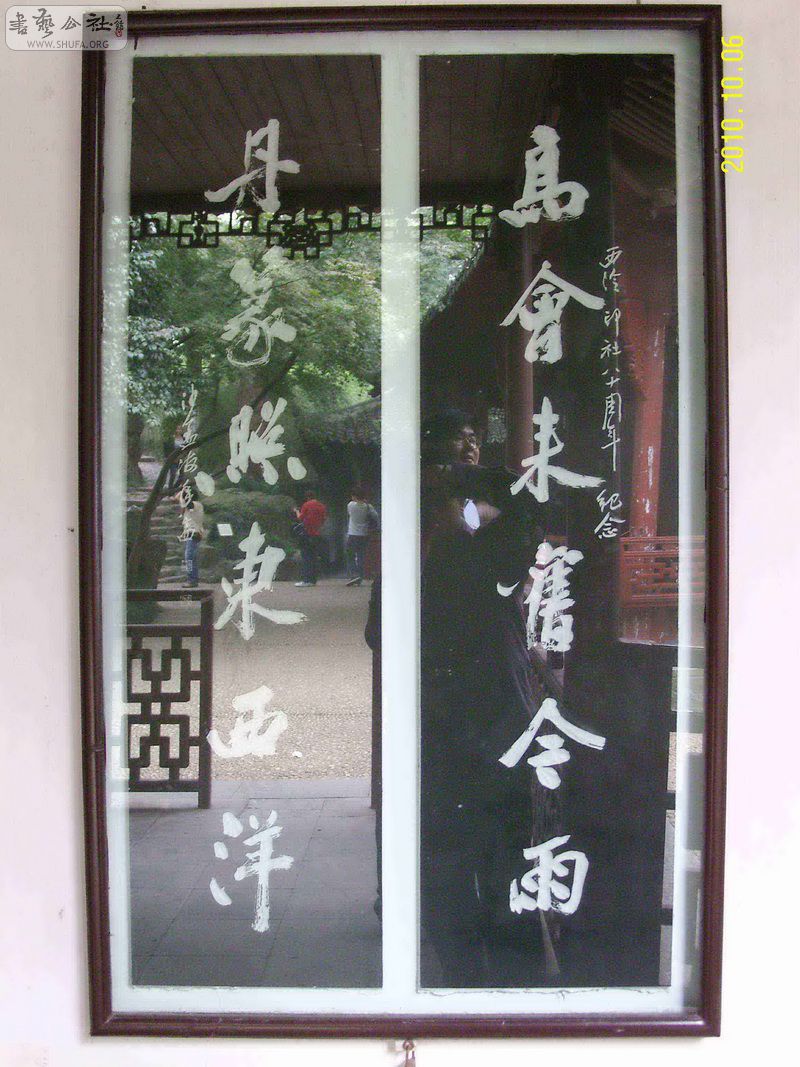 書藝公社
WWW.SHUFA.ORG
2010.10.06
西泠印社八十周年 紀念
高會来舊今雨
丹篆映東西洋
沙孟海